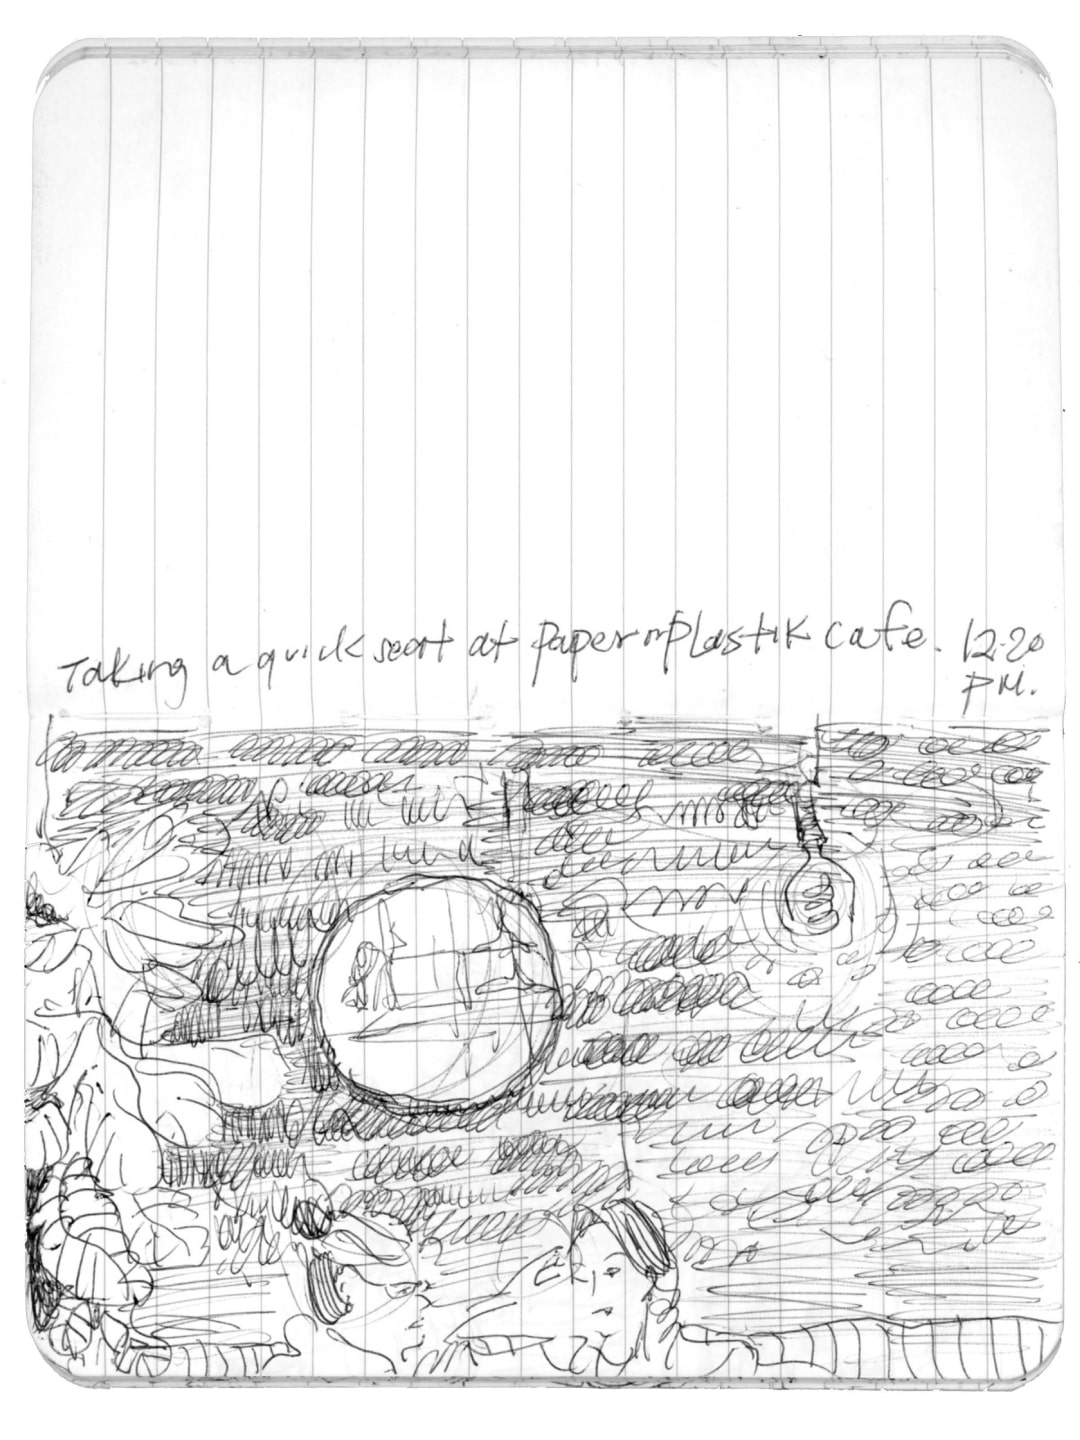 Taking a quick seat at Paper or Plastik cafe. 12.20
PM.